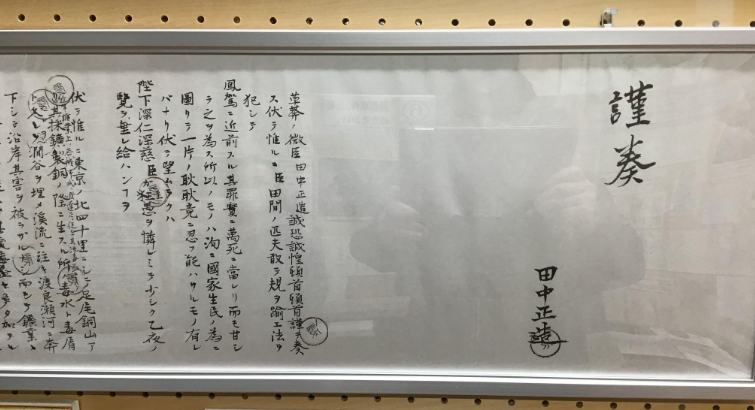 謹奏
田中正造
草莽ノ微臣田中正造誠恐誠惶頓首頓首謹テ奏
ス伏テ惟ルニ臣田間ノ匹夫敢テ規ヲ踰エ法ヲ
犯シテ
鳳駕ニ近前スル其罪實ニ萬死ニ當レリ而モ甘シ
テ之ヲ為ス所以ノモノハ洵ニ國家生民ノ為ニ
圖リテ一片ノ耿耿竟ニ忍フ能ハサルモノ有レ
バナリ伏テ望ムラクハ
陛下深仁深慈臣カ至愚ヲ憐レミテ少シク乙夜ノ
覽ヲ垂レ給ハンコトヲ
伏テ惟ルニ東京ノ北四十里ニシテ足尾銅山アリ
其採鑛製銅ノ際ニ生スル所ノ毒水ト毒屑
ト久シク澗谷ヲ埋メ溪流ニ注キ渡良瀬河ニ奔
下シテ沿岸其害ヲ被ラザルナシ而シテ鑛業ノ